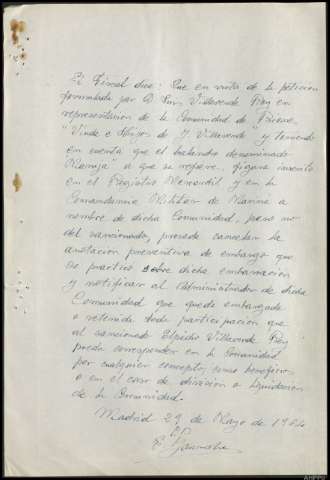 El Fiscal dice: Que en vista de la petición
formulada por D. Luis Villaverde Rey en
representación de la Comunidad de Bienes
"Viuda e Hijos de J. Villaverde" y teniendo
en cuenta que el balandro denominado
a que se refiere, figura inscrito
en el Registro Mercantil y en la
Comandancia Militar de Marina a
nombre de dicha Comunidad, pero no
del sancionado, procede cancelar la
anotación preventiva de embargo que
se practicó sobre dicha embarcación
y notificar al Administrador de dicha
Comunidad que quede embargada
o retenida toda participación que
al sancionado Elpidio Villaverde Rey
pueda corresponder en la Comunidad
por cualquier concepto, como beneficios
o en el caso de división o liquidación
de la Comunidad.
Madrid 29 de Mayo de